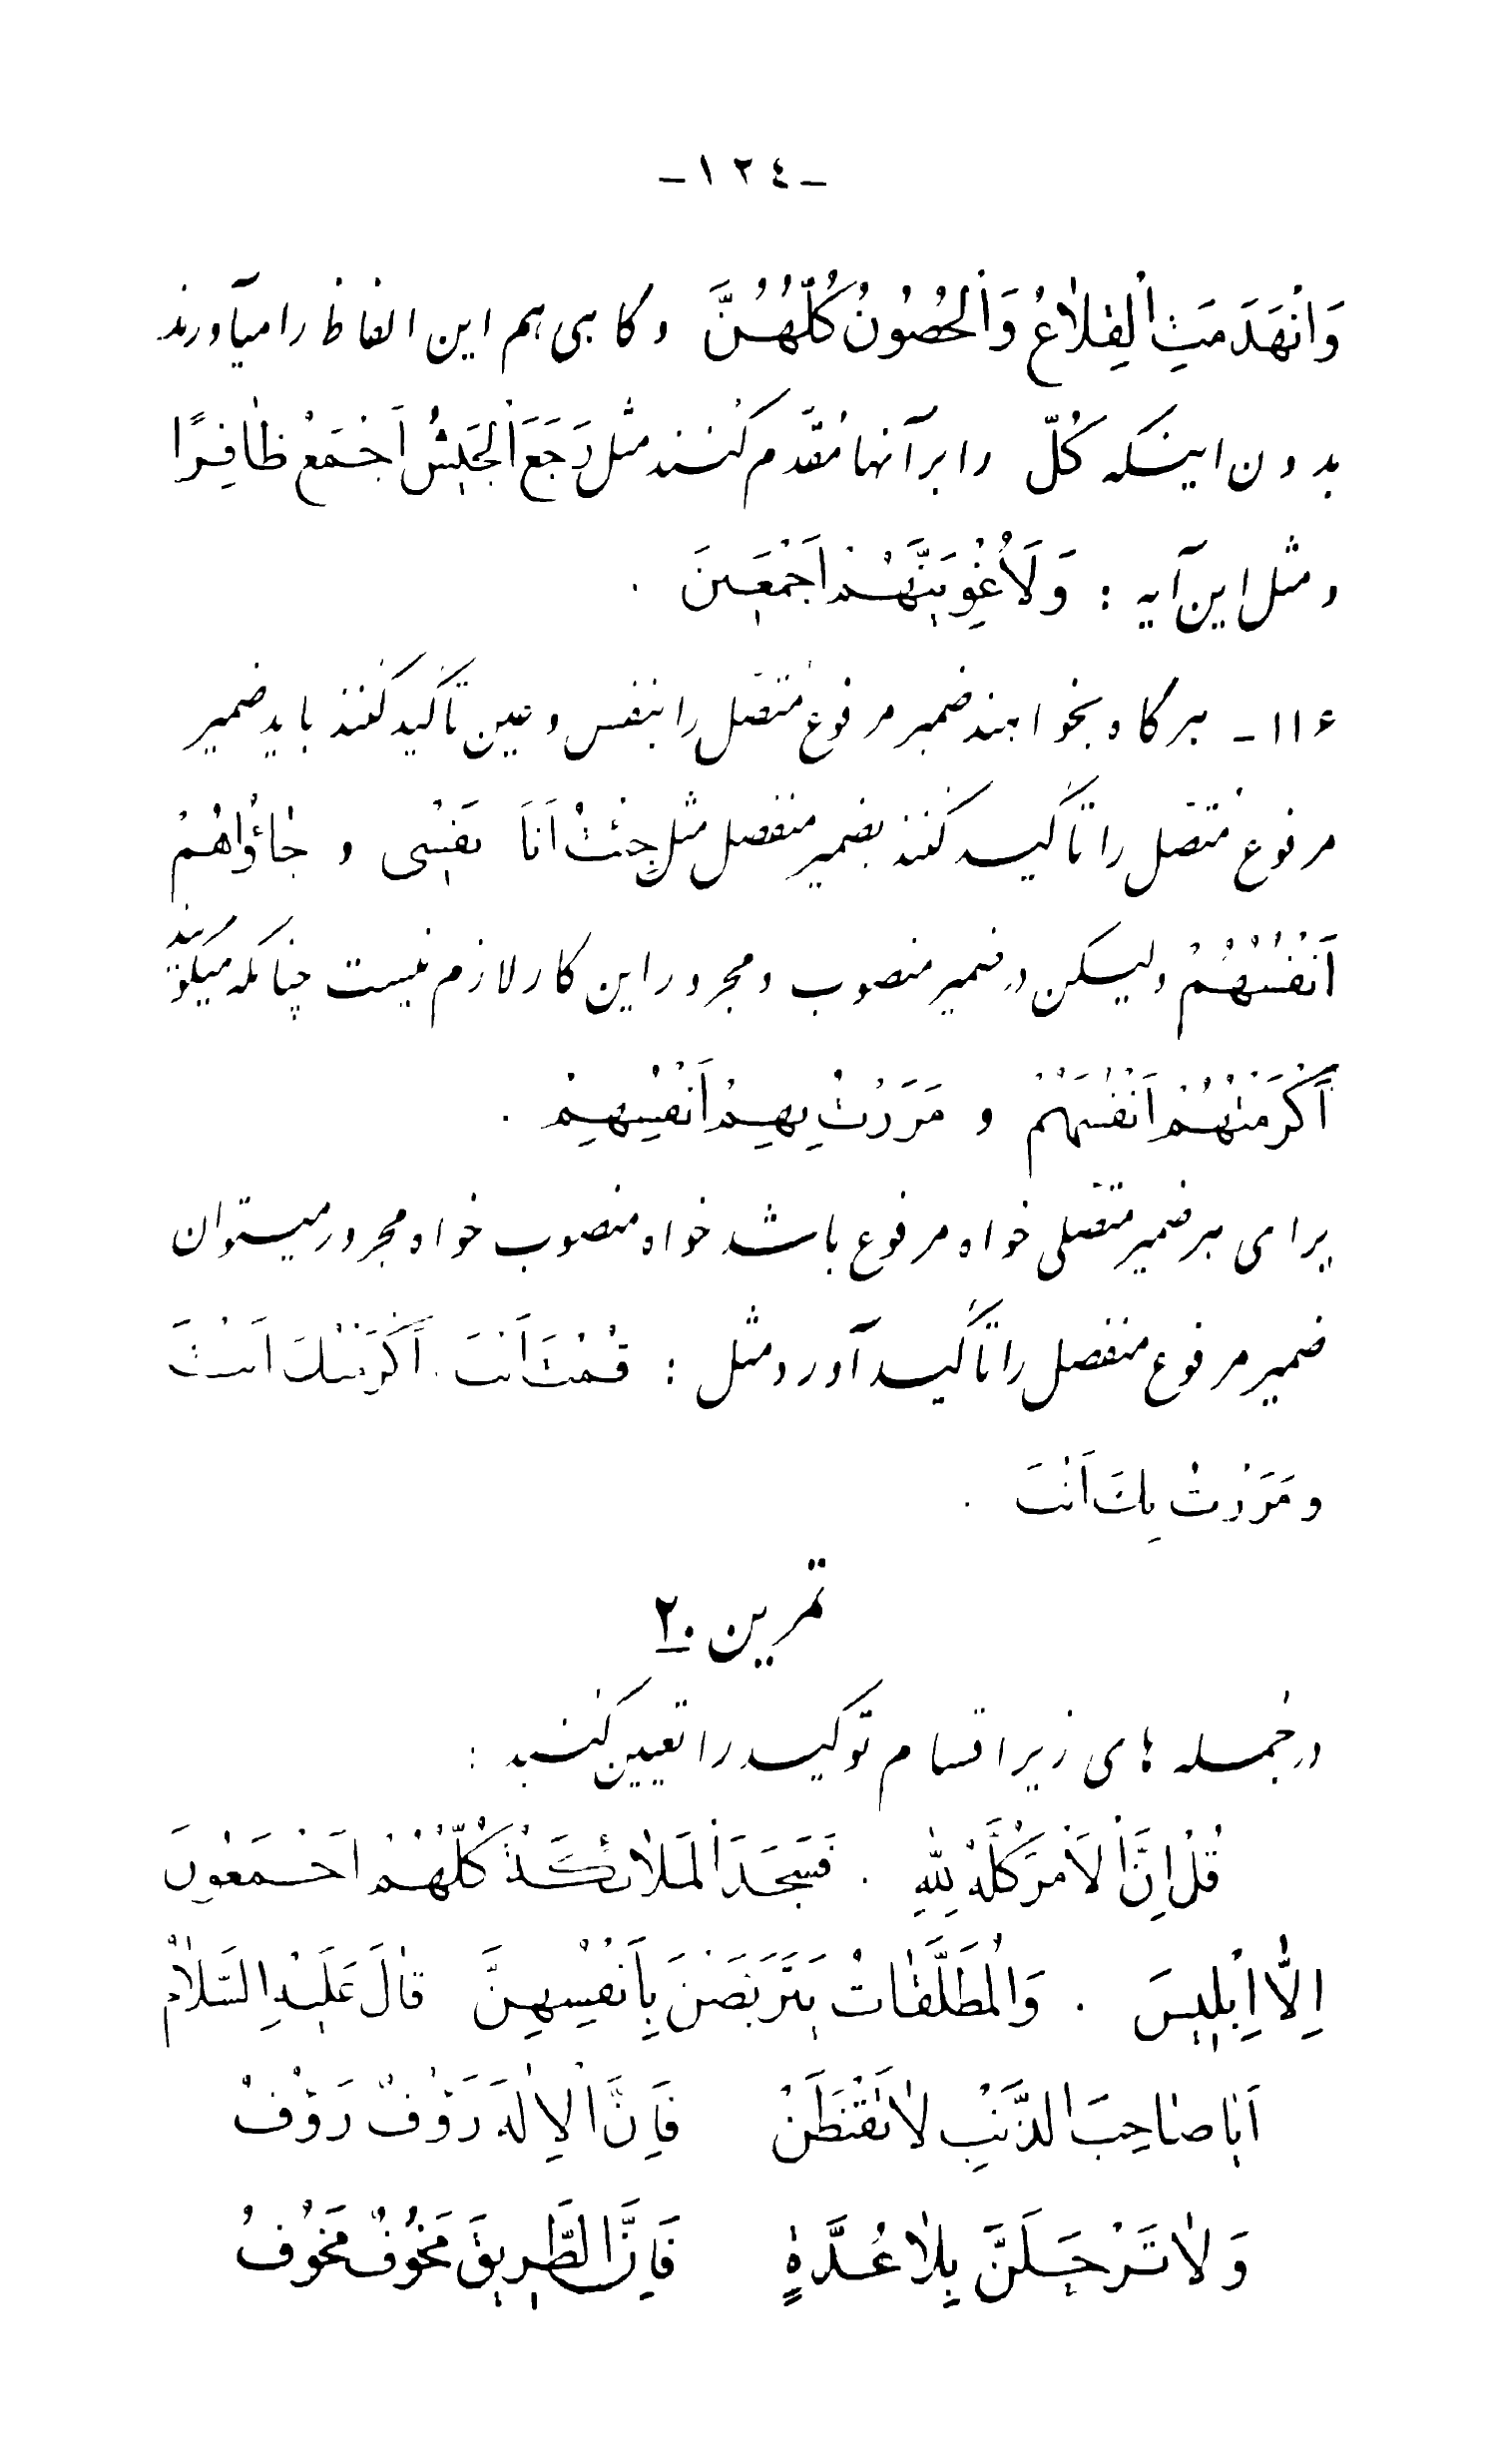 -١٢٤-
وَانْهَدَمَتِ الْقِلاٰعُ وَالْحُصُونُ كُلُّهُنَّ وگاهی هم این الفاظ را میآورند
بدون اینکه كُلّ را بر آنها مُقَدَّم کنند مثل رَجَعَ الْجَيْشُ اَجْمَعُ ظٰافِرًا
ومثل این آیه : وَلَاُغْوِيَنَّهُمْ اَجْمَعينَ .
۱۱۶- هرگاه بخواهند ضمیر مرفوع متّصل را بنفس و عین تأکید کنند باید ضمیر
مرفوع متّصل را تأکید کنند بضمیر منفصل مثل جِئْتُ اَنَا نَفْسی و جٰاؤُاهُمْ
اَنْفُسُهُمْ ولیکن در ضمیر منصوب ومجرور این کار لازم نیست چنانکه میگویند
اَكْرَمْتُهُمْ اَنْفُسَهُمْ و مَرَرْتُ بِهِمْ اَنْفُسِهِمْ .
برای هر ضمیر متّصلی خواه مرفوع باشد خواه منصوب خواه مجرور میتوان
ضمیر مرفوع منفصل را تأکید آورد مثل : قُمْتَ اَنْتَ . اَكْرَمْتُكَ اَنْتَ
و مَرَرْتُ بِكَ اَنْتَ .
تمرین ۲۰
در جمله های زیر اقسام توکید را تعیین کنید :
قُلْ اِنَّ الْاَمْرَ كُلَّهُ لِلّٰهِ . فَسَجَدَ الْمَلاٰئِكَةُ كُلُّهُمْ اَجْمَعُونَ
اِلّٰا اِبْليسَ . وَالْمُطَلَّقٰاتُ يَتَرَبَّصْنَ بِاَنْفُسِهِنَّ قٰالَ عَلَيْهِ السَّلاٰمُ
اَيٰا صٰاحِبَ الذَّنْبِ لاٰ تَقْنَطَنْ فَاِنَّ الْاِلٰهَ رَؤُفٌ رَؤُفْ
وَلاٰ تَرْحَلَنَّ بِلاٰ عُدَّةٍ فَاِنَّ الطَّريقَ مَخُوفٌ مَخُوفُ